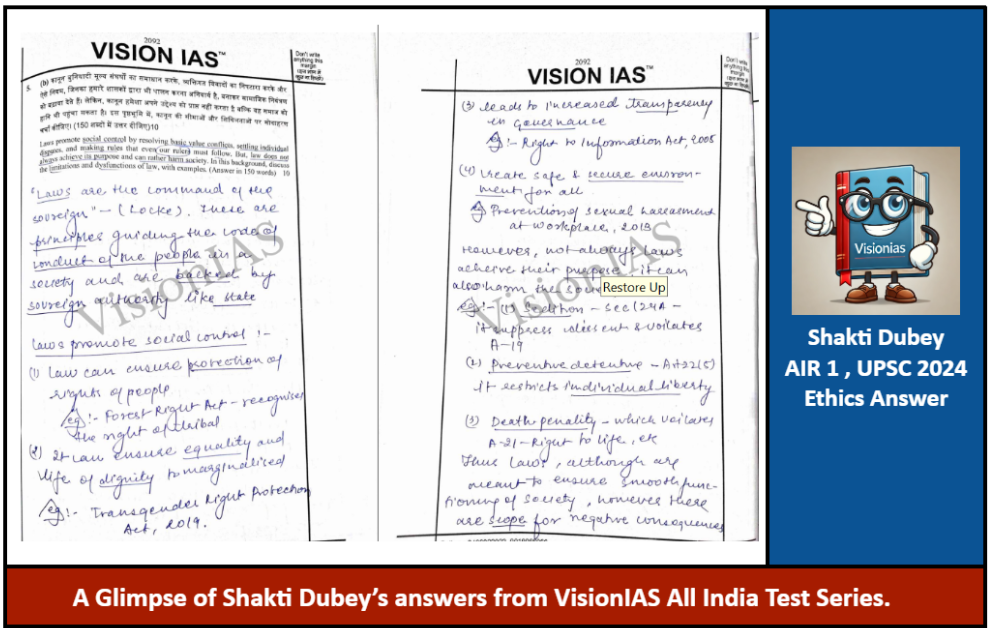 2092
VISION IAS™
Don't write
anything this
margin
5. (b) कानून बुनियादी मूल्य संघर्षों का समाधान करके, व्यक्तिगत विवादों का निपटारा करके और
ऐसे नियम, जिनका हमारे शासकों द्वारा भी पालन करना अनिवार्य है, बनाकर सामाजिक नियंत्रण
को बढ़ावा देते हैं। लेकिन, कानून हमेशा अपने उद्देश्य को प्राप्त नहीं करता है बल्कि यह समाज को
हानि भी पहुंचा सकता है। इस पृष्ठभूमि में, कानून की सीमाओं और शिथिलताओं पर सोदाहरण
चर्चा कीजिए। (150 शब्दों में उत्तर दीजिए)10
Laws promote social control by resolving basic value conflicts, settling individual
disputes, and making rules that even our rulers must follow. But, law does not
always achieve its purpose and can rather harm society. In this background, discuss
the limitations and dysfunctions of law, with examples. (Answer in 150 words) 10
"Laws are the command of the
sovereign" – (Locke). These are
principles guiding the code of
conduct of the people in a
society and are backed by
sovereign authority like state
Laws promote social control :-
(1) Law can ensure protection of
rights of people
eg :- Forest Right Act – recognises
the right of tribal
(2) It can ensure equality and
life of dignity to marginalised
eg :- Transgender Right Protection
Act, 2019.
VisionIAS
2092
VISION IAS™
Don't write
anything this
margin
(3) leads to increased transparency
in governance
eg :- Right to Information Act, 2005
(4) Create safe & secure environ-
ment for all
eg Prevention of sexual harassment
at workplace, 2013
However, not always laws
achieve their purpose, it can
also harm the
Restore Up
eg :- (1) Sedition – Sec 124A –
it suppress dissent & voilates
A-19
(2) Preventive detentive – Art 22(5)
it restricts individual liberty
(3) Death penality – which voilates
A-21 – Right to life, etc
Thus laws, although are
meant to ensure smooth func-
tioning of society, however there
are scope for negative consequences
VisionIAS
Visionias
Shakti Dubey
AIR 1 , UPSC 2024
Ethics Answer
A Glimpse of Shakti Dubey's answers from VisionIAS All India Test Series.